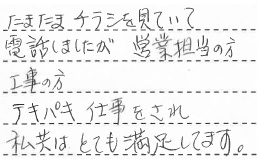 たまたま チラシを見ていて
電話しましたが 営業担当の方
工事の方
テキパキ 仕事をされ
私共は とても満足してます。